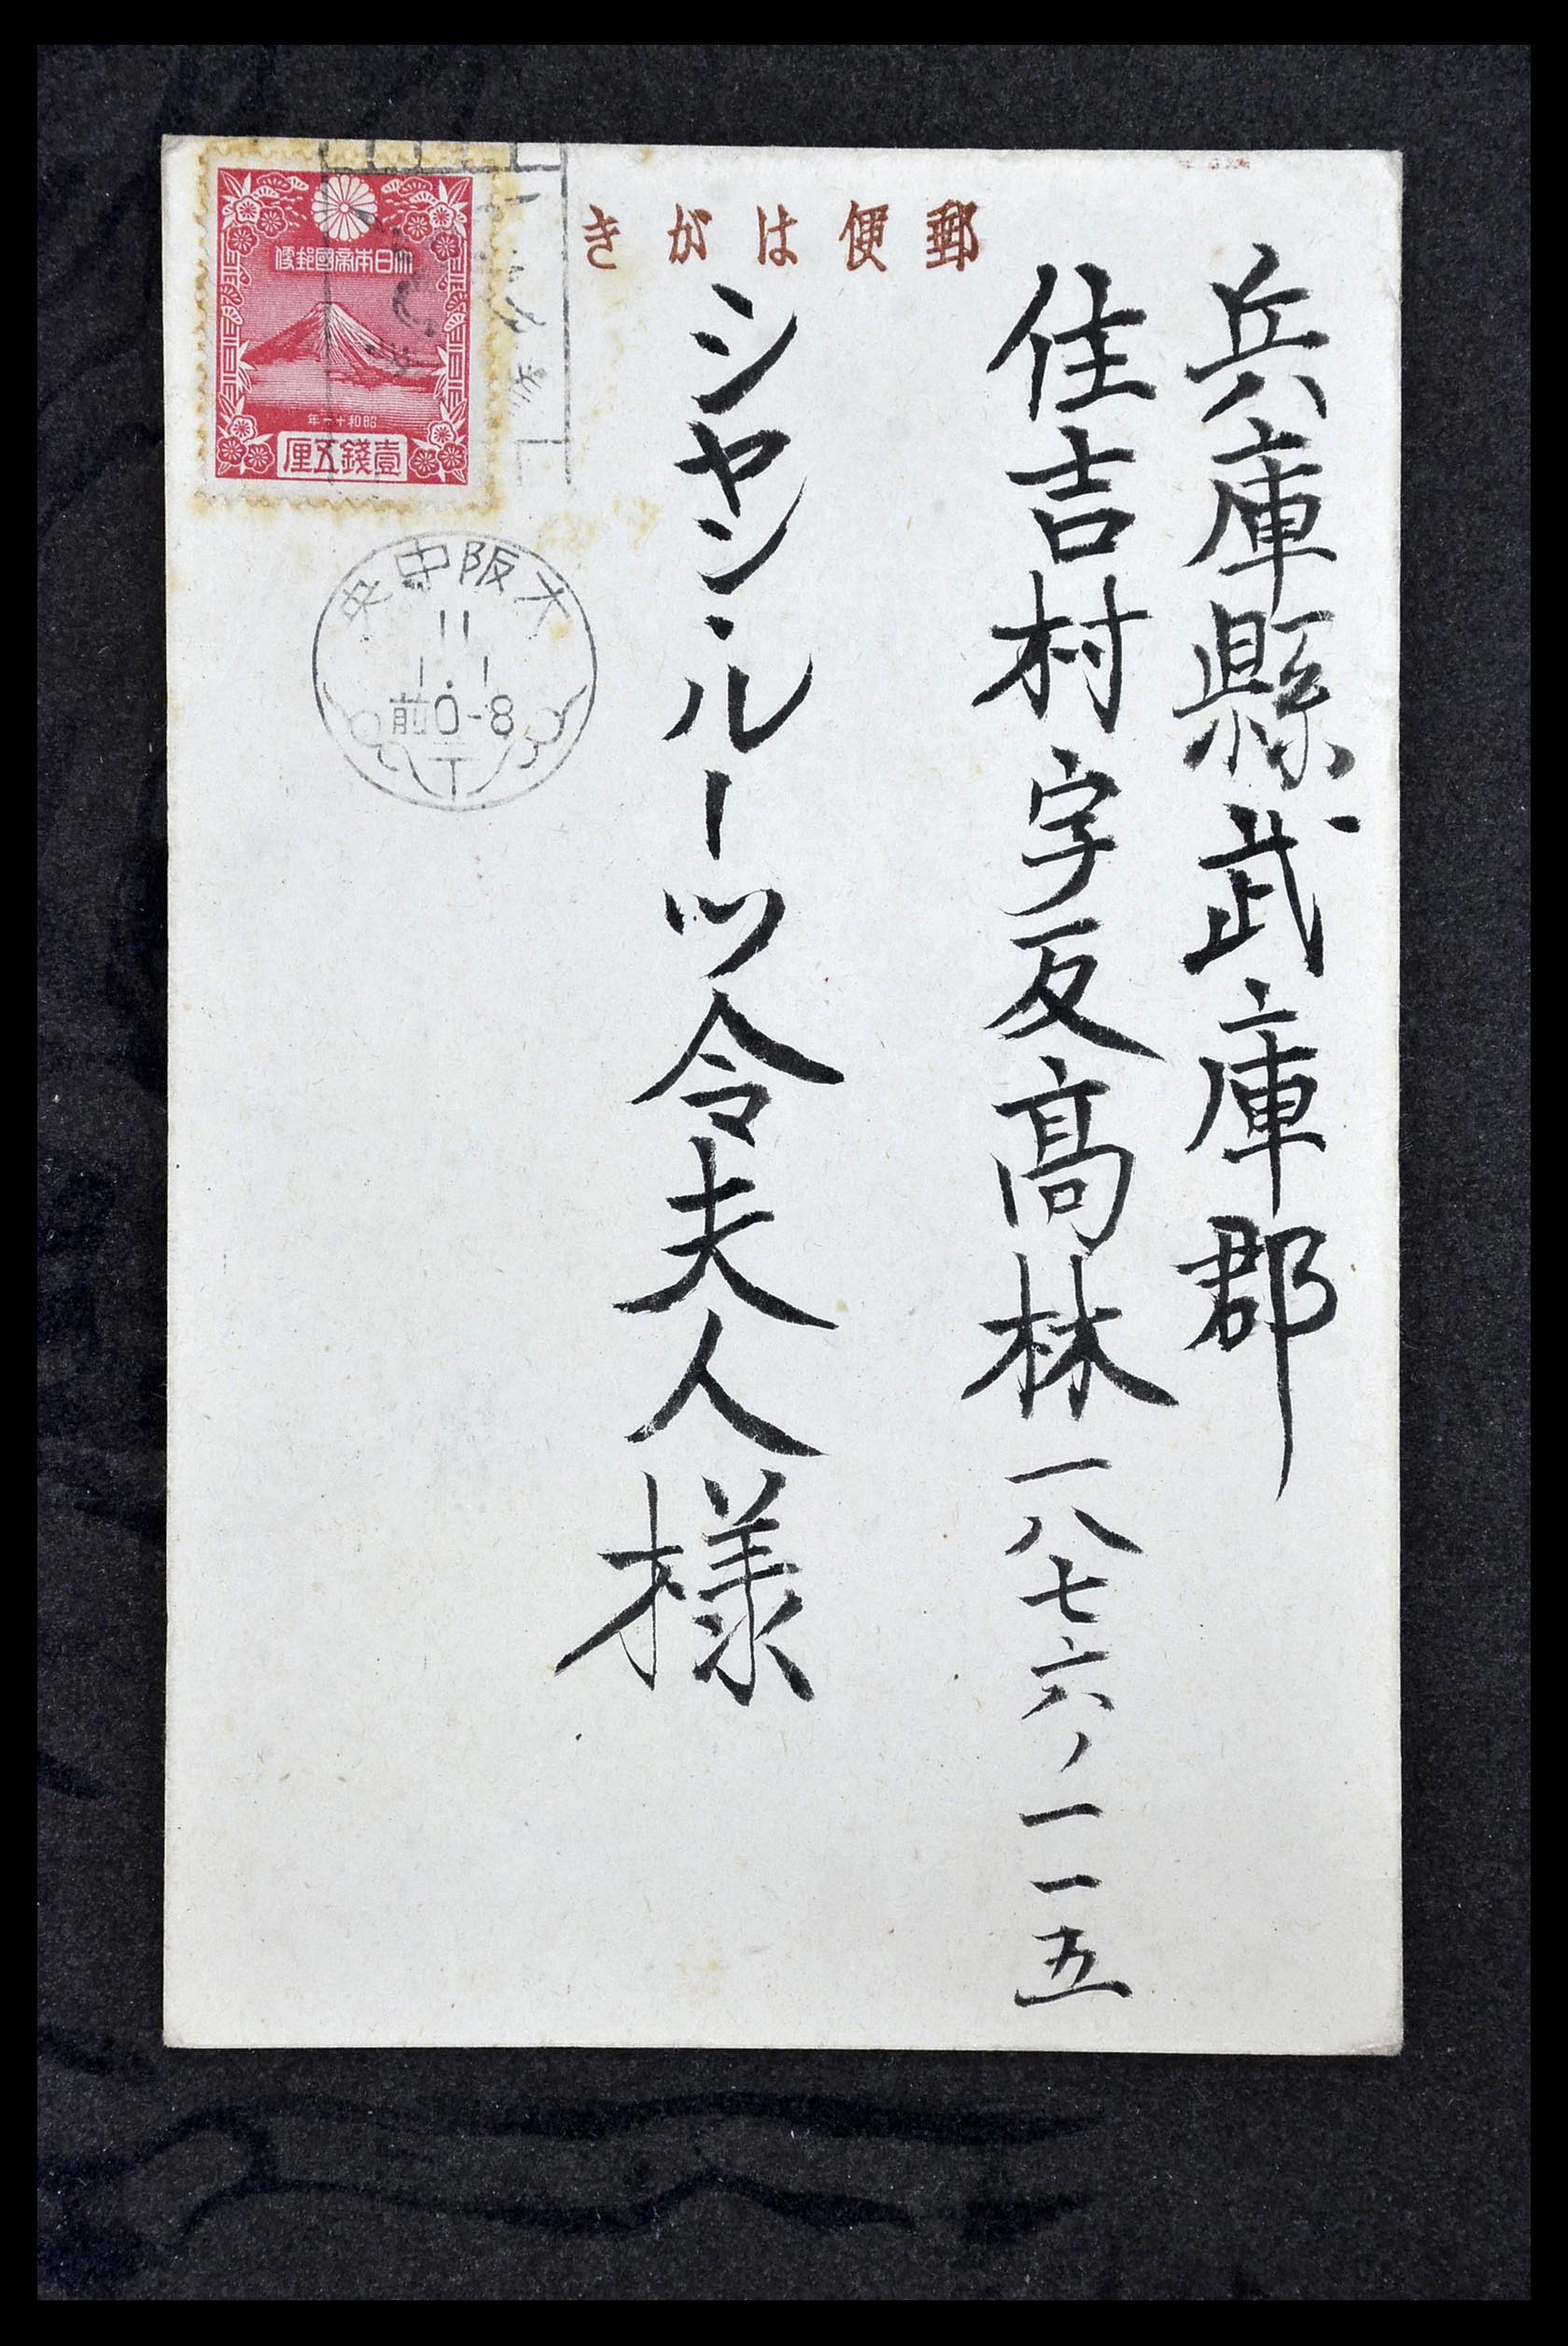 郵便はがき
兵庫縣武庫郡
住吉村字反高林一八七六ノ一一五
シヤン・ルーツ令夫人様
大日本帝國郵便
昭和十一年
壹錢五厘
大阪中央
11
1.1
前0-8